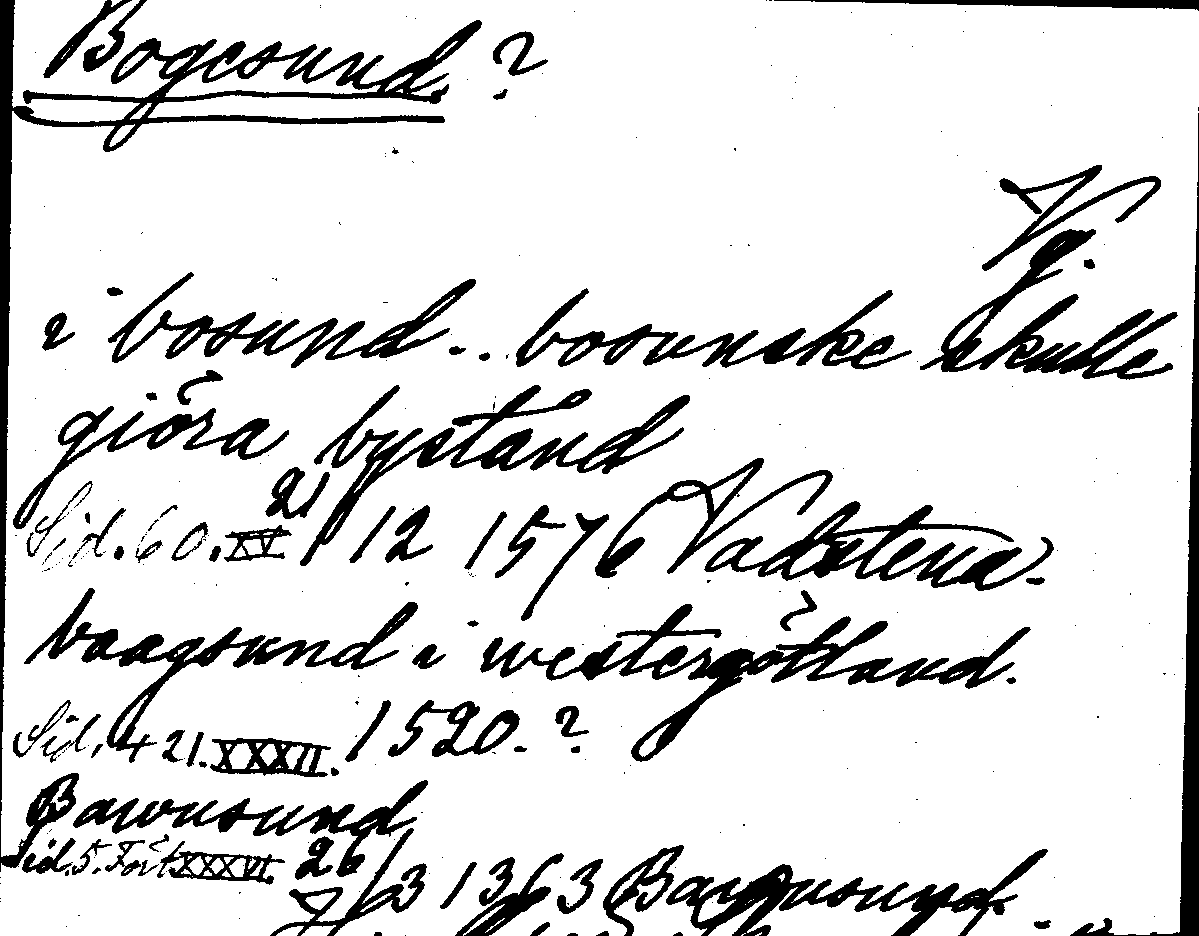 Bogesund. ?
Vg.
i bosund .. bosunske skulle
giöra bystånd
Sid. 60. XV 21/12 1576 Vadstena.
baagsund i westergötland.
Sid. 421. XXXII. 1520. ?
Bawnsund
Sid. 5. Fört XXXVI. 26/3 1363